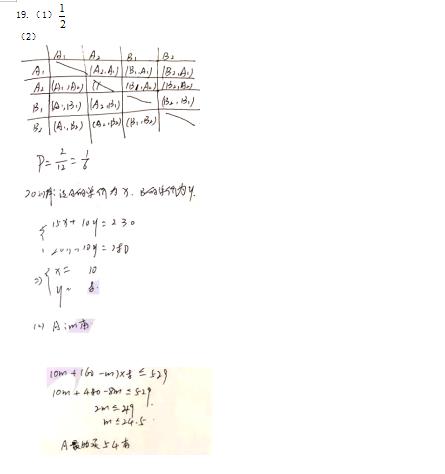 19. (1) 1/2
(2)
A₁ A₂ B₁ B₂
A₁ (A₂,A₁) (B₁,A₁) (B₂,A₁)
A₂ (A₁,A₂) (B₁,A₂) (B₂,A₂)
B₁ (A₁,B₁) (A₂,B₁) (B₂,B₁)
B₂ (A₁,B₂) (A₂,B₂) (B₁,B₂)
P=2/12=1/6
20.(1)解:设A的单价为x,B的单价为y.
{15x+10y=230
10y=280
⇒{x=10
y=8.
(2) A:m本
10m+(60-m)×8≤529
10m+480-8m≤529
2m≤49
m≤24.5.
A最 54本